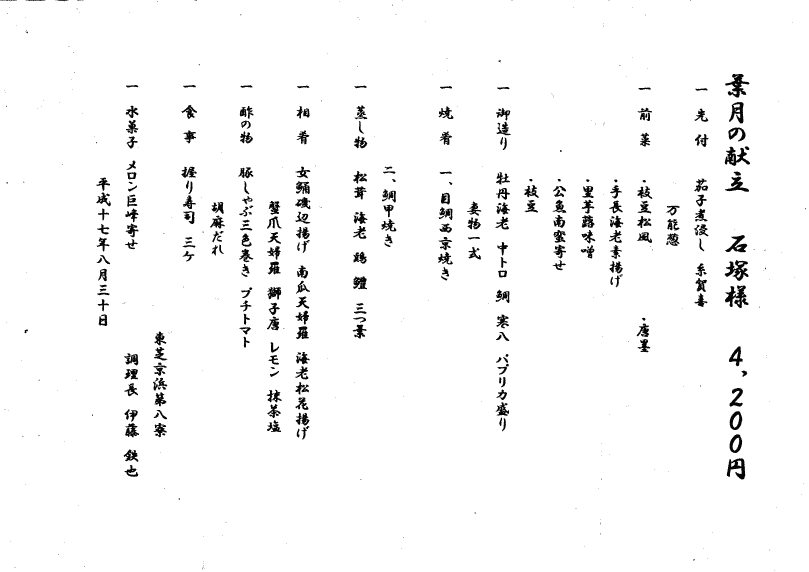 葉月の献立　石塚様　4,200円
一　先付　茄子煮浸し　糸賀喜
万能葱
一　前菜　・枝豆松風　・唐墨
・手長海老素揚げ
・里芋蕗味噌
・公魚南蛮寄せ
・枝豆
一　御造り　牡丹海老　中トロ　鯛　寒八　パプリカ盛り
妻物一式
一　焼肴　一、目鯛西京焼き
二、鯛甲焼き
一　蒸し物　松茸　海老　鶏　鱧　三つ葉
一　相肴　女鯒磯辺揚げ　南瓜天婦羅　海老松花揚げ
蟹爪天婦羅　獅子唐　レモン　抹茶塩
一　酢の物　豚しゃぶ三色巻き　プチトマト
胡麻だれ
一　食事　握り寿司　三ケ
一　水菓子　メロン巨峰寄せ
平成十七年八月三十日
東芝京浜第八寮
調理長　伊藤　鉄也